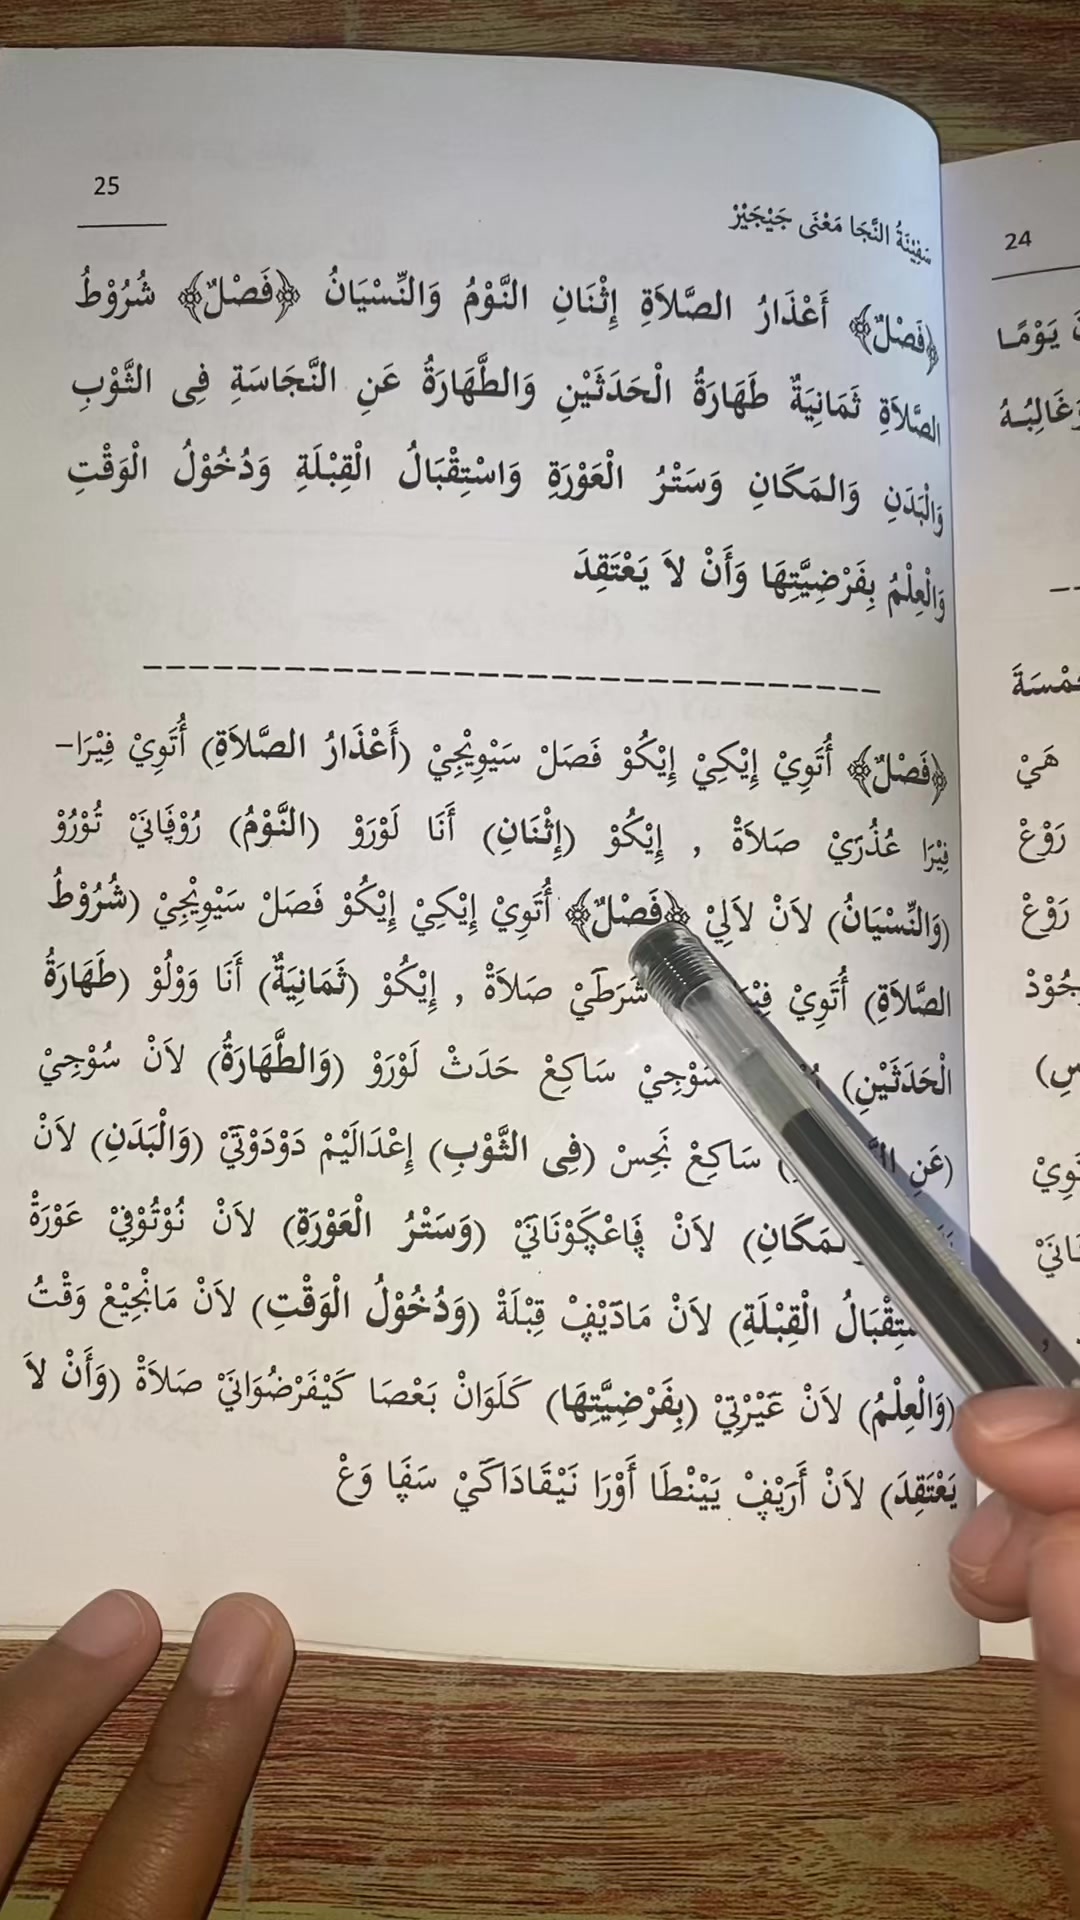 25
سَفِيْنَةُ النَّجَا مَعْنَى جَيْجَيْرْ
﴿فَصْلٌ﴾ أَعْذَارُ الصَّلاَةِ إِثْنَانِ النَّوْمُ وَالنِّسْيَانُ ﴿فَصْلٌ﴾ شُرُوْطُ
الصَّلاَةِ ثَمَانِيَةٌ طَهَارَةُ الْحَدَثَيْنِ وَالطَّهَارَةُ عَنِ النَّجَاسَةِ فِى الثَّوْبِ
وَالْبَدَنِ وَالمَكَانِ وَسَتْرُ الْعَوْرَةِ وَاسْتِقْبَالُ الْقِبْلَةِ وَدُخُوْلُ الْوَقْتِ
وَالْعِلْمُ بِفَرْضِيَّتِهَا وَأَنْ لاَ يَعْتَقِدَ
﴿فَصْلٌ﴾ أُتَوِيْ إِيْكِيْ إِيْكُوْ فَصَلْ سَيْوِيْجِيْ (أَعْذَارُ الصَّلاَةِ) أُتَوِيْ فِيْرَا-
فِيْرَا عُذُرَيْ صَلاَةْ , إِيْكُوْ (إِثْنَانِ) أَنَا لَوْرَوْ (النَّوْمُ) رُوْڤَانَيْ تُوْرُوْ
(وَالنِّسْيَانُ) لاَنْ لاَلِيْ ﴿فَصْلٌ﴾ أُتَوِيْ إِيْكِيْ إِيْكُوْ فَصَلْ سَيْوِيْجِيْ (شُرُوْطُ
الصَّلاَةِ) أُتَوِيْ شَرَطَيْ صَلاَةْ , إِيْكُوْ (ثَمَانِيَةٌ) أَنَا وَوْلُوْ (طَهَارَةُ
الْحَدَثَيْنِ) سُوْجِيْ سَاكِعْ حَدَثْ لَوْرَوْ (وَالطَّهَارَةُ) لاَنْ سُوْجِيْ
(عَنِ سَاكِعْ نَجِسْ (فِى الثَّوْبِ) إِعْدَالَيْمْ دَوْدَوْتَيْ (وَالْبَدَنِ) لاَنْ
لاَنْ ڤَاعْݢَوْنَانَيْ (وَسَتْرُ الْعَوْرَةِ) لاَنْ نُوْتُوْفِيْ عَوْرَةْ
الْقِبْلَةِ) لاَنْ مَادَيْفْ قِبْلَةْ (وَدُخُوْلُ الْوَقْتِ) لاَنْ مَانْجِيْعْ وَقْتُ
(وَالْعِلْمُ) لاَنْ عَيْرْتِيْ (بِفَرْضِيَّتِهَا) كَلَوَانْ بَعْصَا كَيْفَرْضُوَانَيْ صَلاَةْ (وَأَنْ لاَ
يَعْتَقِدَ) لاَنْ أَرَيْڤْ يَيْنْطَا أَوْرَا نَيْقَادَاكَيْ سَڤَا وَعْ
24
يَوْمًا
هَيْ
رَوْعْ
رَوْعْ